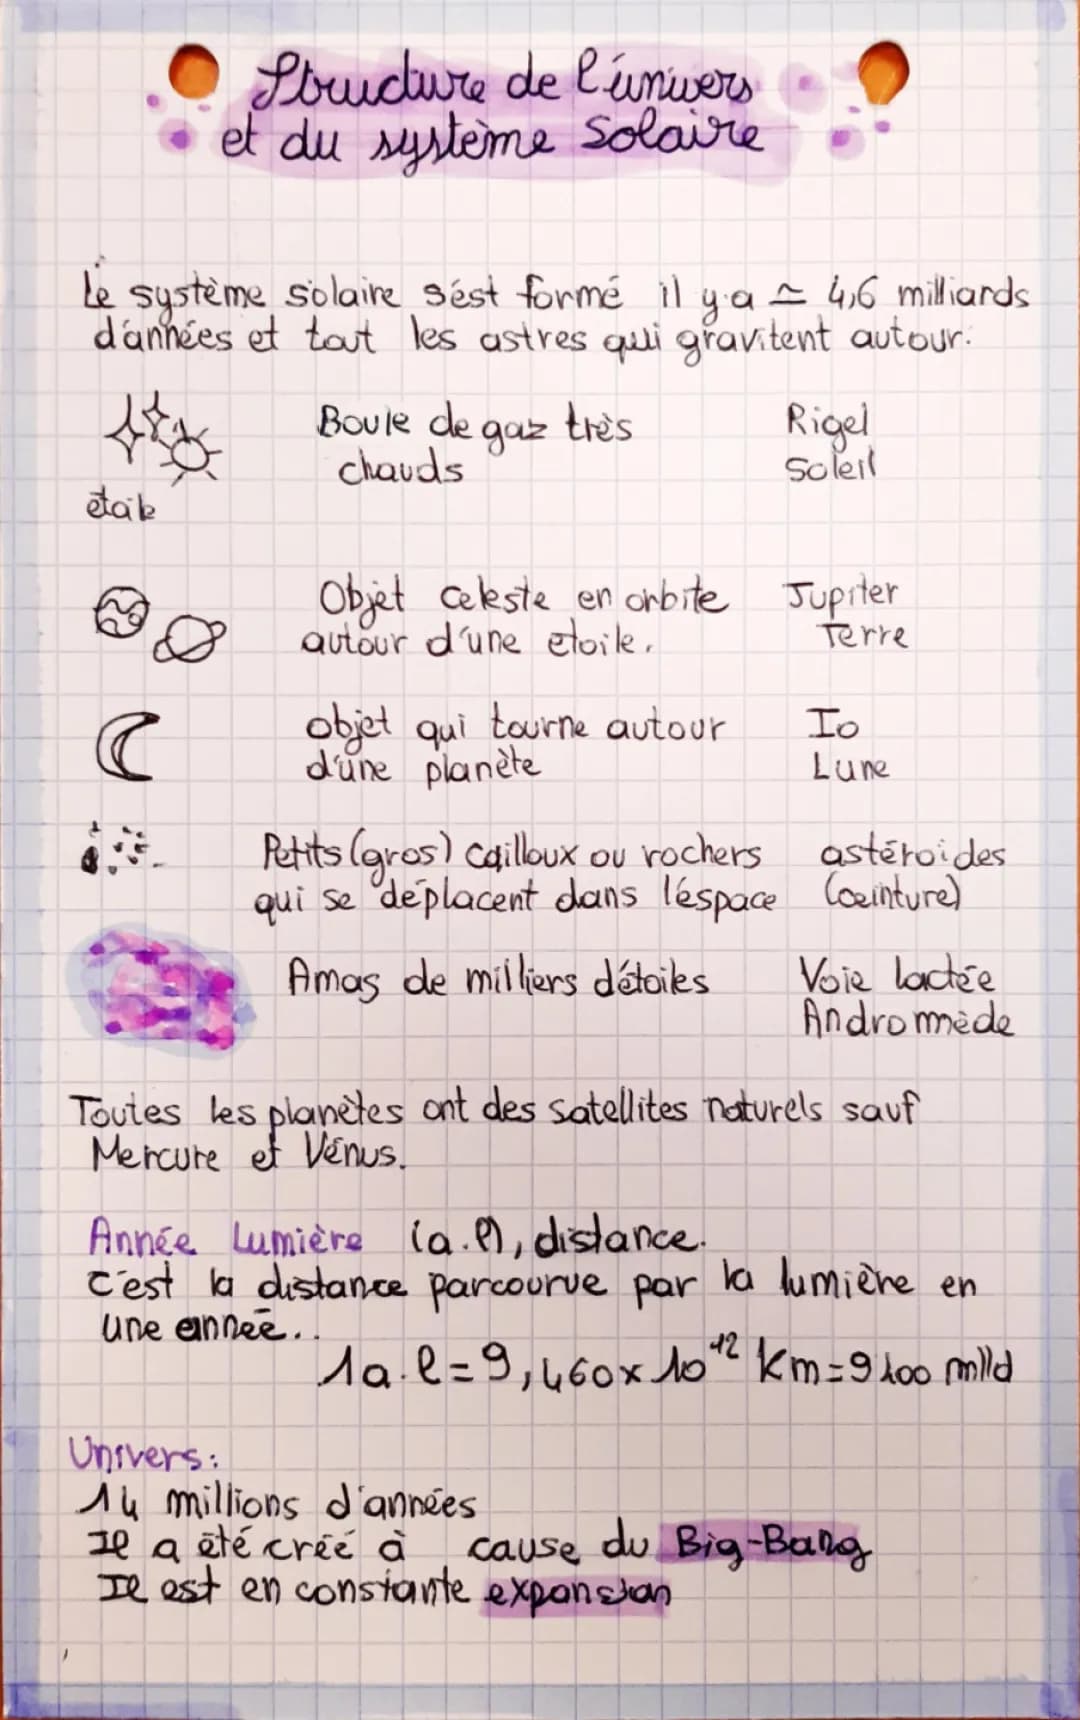 Structure de l'univers
et du système solaire
Le système solaire s'est formé il y a ≃ 4,6 milliards
d'années et tout les astres qui gravitent autour.
Boule de gaz très
chauds
Rigel
Soleil
étoile
Objet celeste en orbite
autour d'une etoile.
Jupiter
Terre
objet qui tourne autour
d'une planète
Io
Lune
Petits (gros) cailloux ou rochers
qui se déplacent dans l'espace
astéroides
(ceinture)
Amas de milliers d'étoiles
Voie lactée
Andromède
Toutes les planètes ont des satellites naturels sauf
Mercure et Vénus.
Année Lumière (a.l), distance.
C'est la distance parcourue par la lumière en
une année..
1a.l=9,460x10¹² km=9400 mlld
Univers:
14 millions d'années
Il a été créé à cause du Big-Bang
Il est en constante expansion